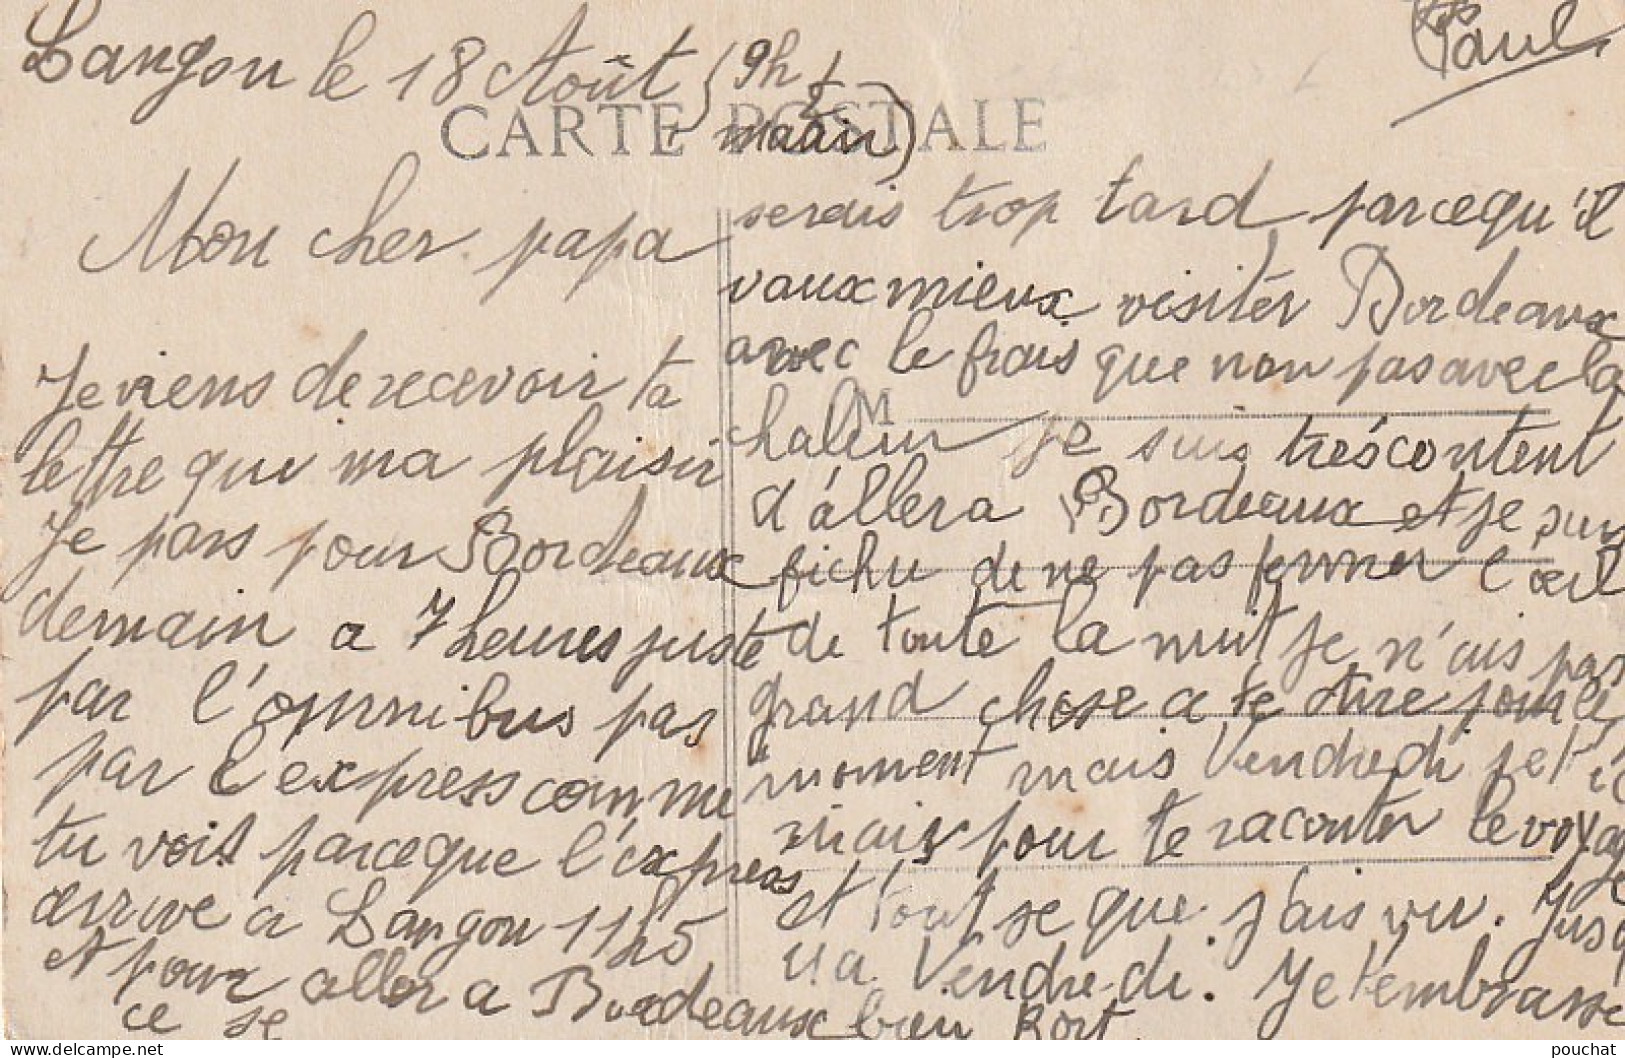 Paul
Langon le 18 Août (9h ½
matin)
CARTE POSTALE
Mon cher papa
Je viens de recevoir ta
lettre qui ma plaisir
Je pars pour Bordeaux
demain a 7 heures juste
par l'omnibus pas
par l'express comme
tu vois parceque l'express
arrive a Langon 11h5
et pour aller a Bordeaux
ce se
serais trop tard parcequ'il
vaux mieux visiter Bordeaux
avec le frais que non pas avec la
chaleur je suis très content
M
d'àller a Bordeaux et je suis
fichu de ne pas fermer l'œil
de toute la nuit je n'ais pas
grand chose a te dire pour le
moment mais Vendredi je t'
mais pour te raconter le voyage
et tout se que j'ais vu. Jusq
u'a Vendredi. Je t'embrasse
bien fort
pouchat